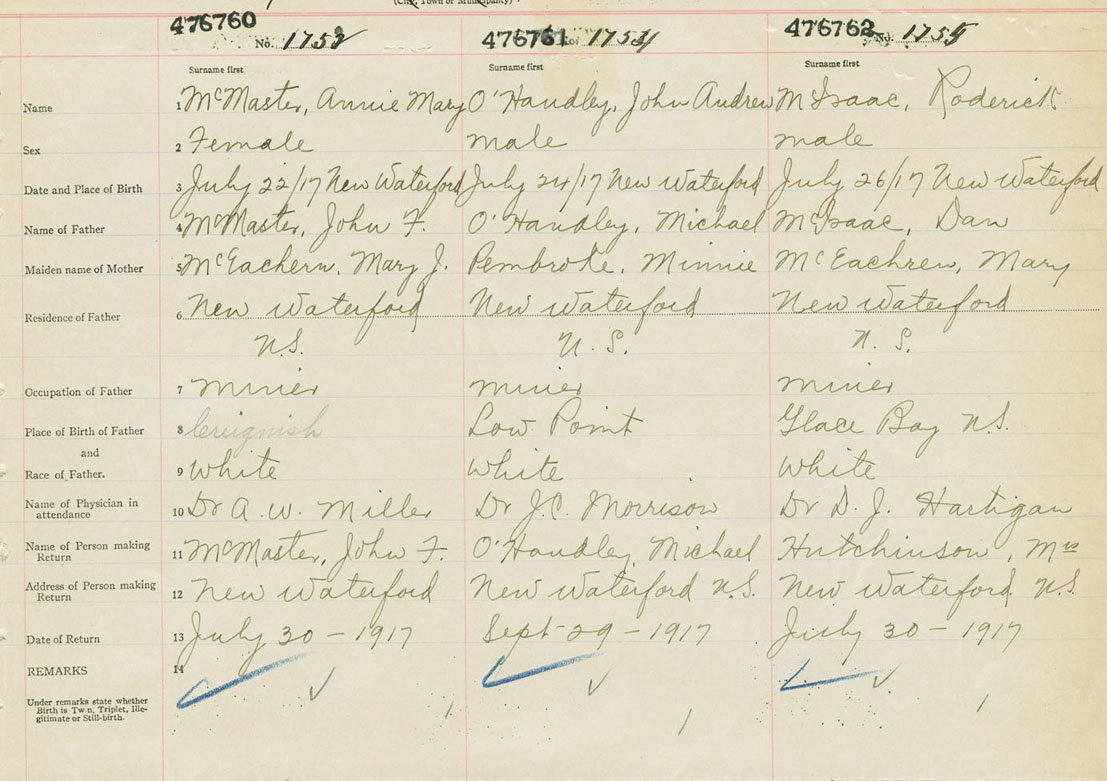 (City, Town or Municipality)
476760 476761 476762
No. 1753 No. 1754 No. 1755
Surname first Surname first Surname first
Name 1 McMaster, Annie Mary O'Handley, John Andrew McIsaac, Roderick
Sex 2 Female male male
Date and Place of Birth 3 July 22/17 New Waterford July 24/17 New Waterford July 26/17 New Waterford
Name of Father 4 McMaster, John F. O'Handley, Michael McIsaac, Dan
Maiden name of Mother 5 McEachern, Mary J. Pembroke, Minnie McEachren, Mary
Residence of Father 6 New Waterford New Waterford New Waterford
N.S. N.S. N.S.
Occupation of Father 7 miner miner miner
Place of Birth of Father 8 Creignish Low Point Glace Bay N.S.
and
Race of Father. 9 White White White
Name of Physician in attendance 10 Dr A. W. Miller Dr J.C. Morrison Dr D. J. Hartigan
Name of Person making Return 11 McMaster, John F. O'Handley Michael Hutchinson, Mrs
Address of Person making Return 12 New Waterford New Waterford N.S. New Waterford N.S.
Date of Return 13 July 30 - 1917 Sept - 29 - 1917 July 30 - 1917
REMARKS 14
Under remarks state whether
Birth is Twin, Triplet, Ille-
gitimate or Still-birth.